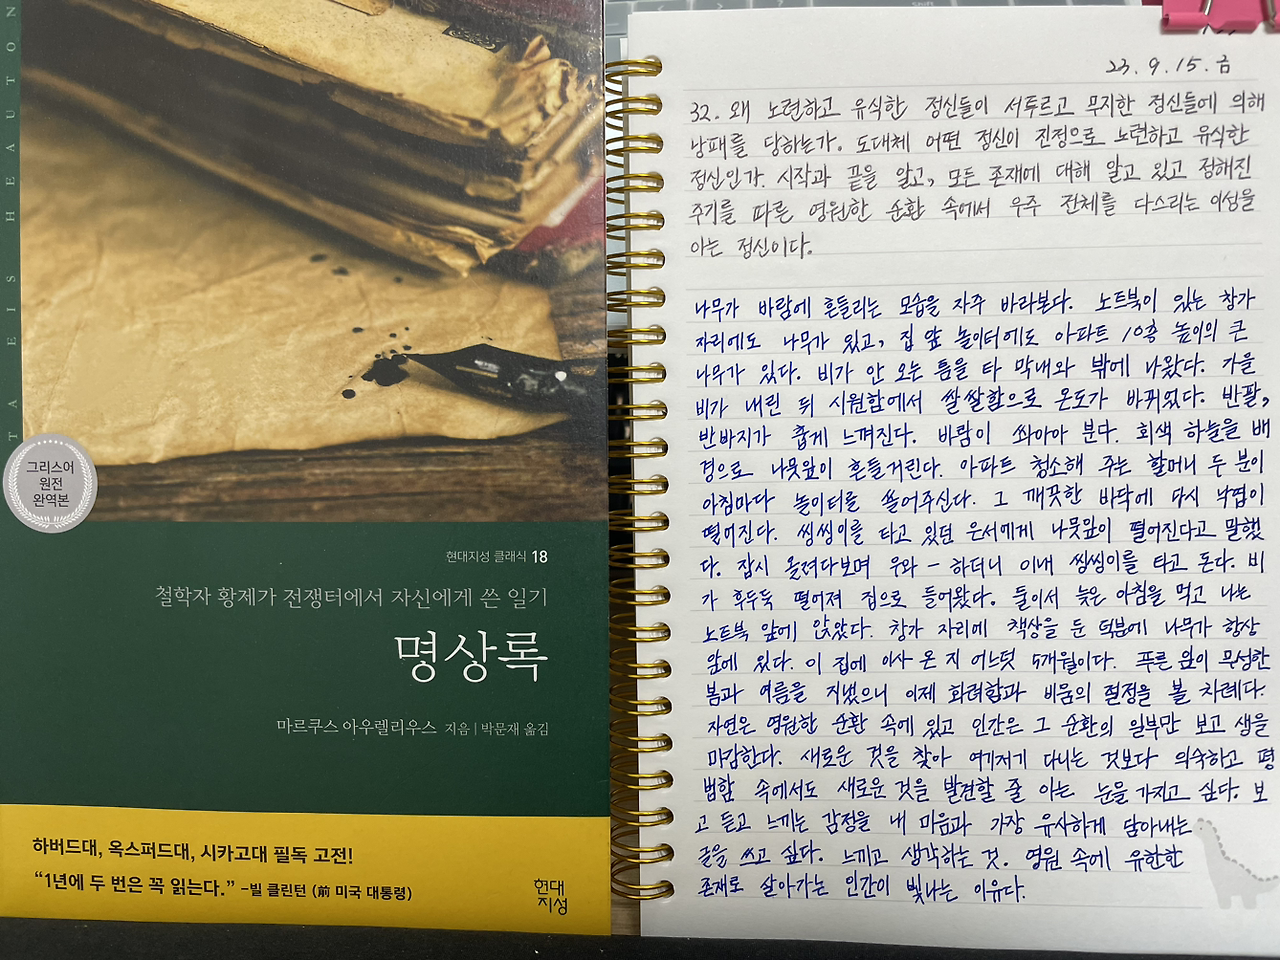 TA EIS HEAUTON
그리스어
원전
완역본
현대지성 클래식 18
철학자 황제가 전쟁터에서 자신에게 쓴 일기
명상록
마르쿠스 아우렐리우스 지음 | 박문재 옮김
하버드대, 옥스퍼드대, 시카고대 필독 고전!
“1년에 두 번은 꼭 읽는다.” -빌 클린턴 (前 미국 대통령)
현대
지성
23. 9. 15. 금
32. 왜 노련하고 유식한 정신들이 서투르고 무지한 정신들에 의해
낭패를 당하는가. 도대체 어떤 정신이 진정으로 노련하고 유식한
정신인가. 시작과 끝을 알고, 모든 존재에 대해 알고 있고 정해진
주기를 따른 영원한 순환 속에서 우주 전체를 다스리는 이성을
아는 정신이다.
나무가 바람에 흔들리는 모습을 자주 바라본다. 노트북이 있는 창가
자리에도 나무가 있고, 집 앞 놀이터에도 아파트 10층 높이의 큰
나무가 있다. 비가 안 오는 틈을 타 막내와 밖에 나왔다. 가을
비가 내린 뒤 시원함에서 쌀쌀함으로 온도가 바뀌었다. 반팔,
반바지가 춥게 느껴진다. 바람이 쏴아아 분다. 회색 하늘을 배
경으로 나뭇잎이 흔들거린다. 아파트 청소해 주는 할머니 두 분이
아침마다 놀이터를 쓸어주신다. 그 깨끗한 바닥에 다시 낙엽이
떨어진다. 씽씽이를 타고 있던 은서에게 나뭇잎이 떨어진다고 말했
다. 잠시 올려다보며 우와- 하더니 이내 씽씽이를 타고 돈다. 비
가 후두둑 떨어져 집으로 들어왔다. 둘이서 늦은 아침을 먹고 나는
노트북 앞에 앉았다. 창가 자리에 책상을 둔 덕분에 나무가 항상
앞에 있다. 이 집에 이사 온 지 어느덧 5개월이다. 푸른 잎이 무성한
봄과 여름을 지냈으니 이제 화려함과 비움의 절정을 볼 차례다.
자연은 영원한 순환 속에 있고 인간은 그 순환의 일부만 보고 생을
마감한다. 새로운 것을 찾아 여기저기 다니는 것보다 익숙하고 평
범함 속에서도 새로운 것을 발견할 줄 아는 눈을 가지고 싶다. 보
고 듣고 느끼는 감정을 내 마음과 가장 유사하게 담아내는
글을 쓰고 싶다. 느끼고 생각하는 것. 영원 속에 유한한
존재로 살아가는 인간이 빛나는 이유다.